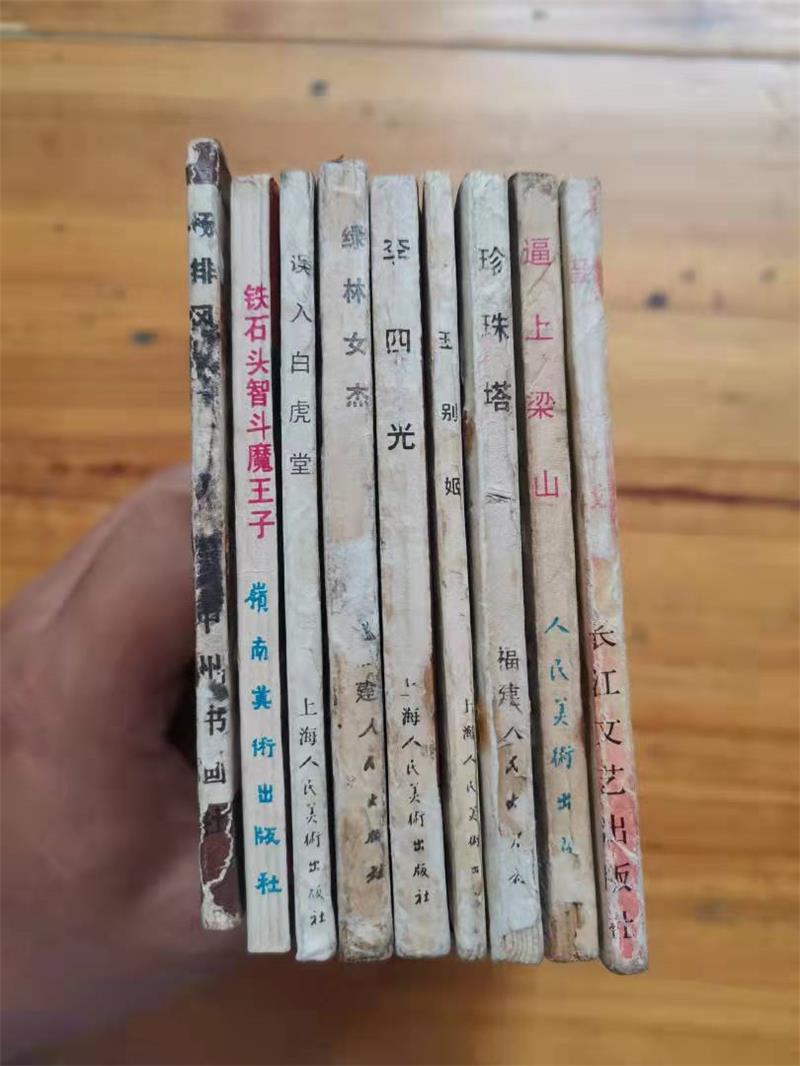 杨排风
中州书画社
铁石头智斗魔王子
嶺南美術出版社
误入白虎堂
上海人民美術出版社
绿林女杰
建人民出版社
李四光
上海人民美術出版社
王别姬
上海人民美術出
珍珠塔
福建人民出
逼上梁山
人民美術出版
长江文艺出版社